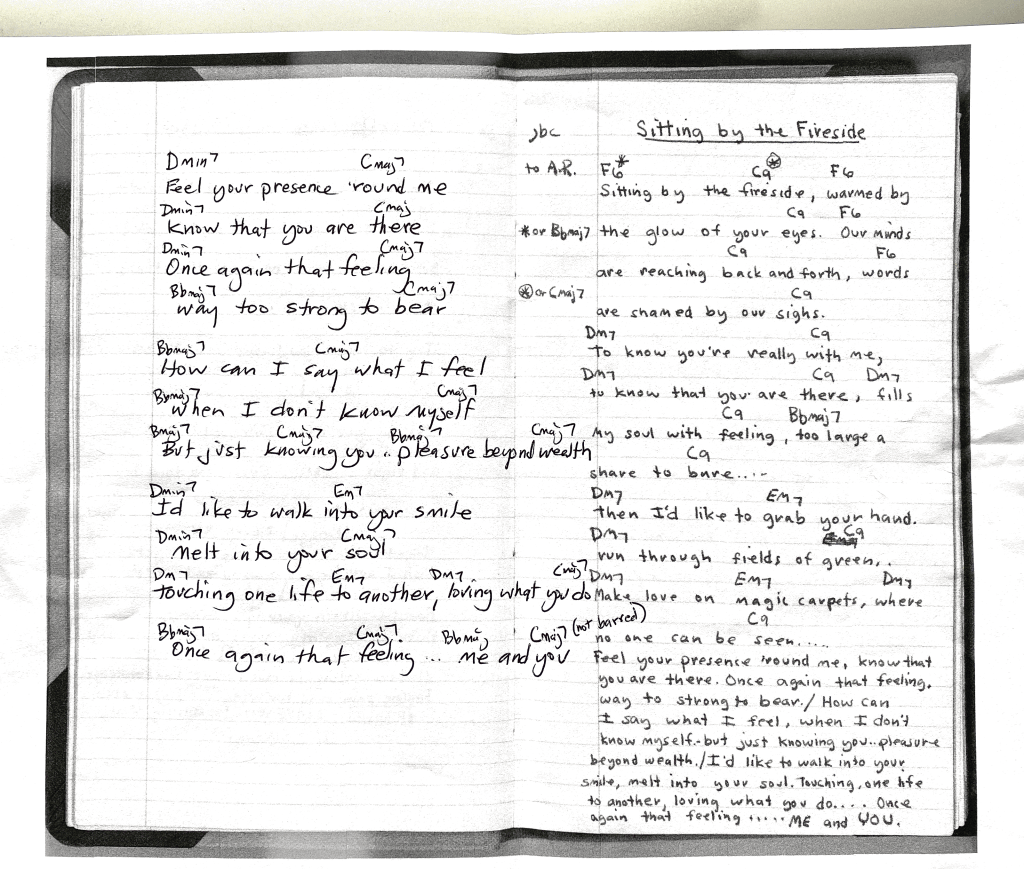 Dmin7 Cmaj7
Feel your presence 'round me
Dmin7 Cmaj
Know that you are there
Dmin7 Cmaj7
Once again that feeling
Bbmaj7 Cmaj7
way too strong to bear
Bbmaj7 Cmaj7
How can I say what I feel
Bbmaj7 Cmaj7
when I don't know myself
Bmaj7 Cmaj7 Bbmaj7 Cmaj7
But just knowing you.. pleasure beyond wealth
Dmin7 Em7
I'd like to walk into your smile
Dmin7 Cmaj7
Melt into your soul
Dm7 Em7 Dm7 Cmaj7
touching one life to another, loving what you do
Bbmaj7 Cmaj7 Bbmaj7 Cmaj7 (not barred)
Once again that feeling ... me and you
jbc Sitting by the Fireside
to A.R. F6* C9⊛ F6
Sitting by the fireside, warmed by
C9 F6
* or Bbmaj7 the glow of your eyes. Our minds
C9 F6
are reaching back and forth, words
⊛ or Cmaj7 C9
are shamed by our sighs.
Dm7 C9
To know you're really with me,
Dm7 C9 Dm7
to know that you are there, fills
C9 Bbmaj7
my soul with feeling, too large a
C9
share to bare.....
Dm7 Em7
then I'd like to grab your hand.
Dm7 C9
run through fields of green..
Dm7 Em7 Dm7
Make love on magic carpets, where
C9
no one can be seen.....
Feel your presence 'round me, know that
you are there. Once again that feeling.
way to strong to bear./ How can
I say what I feel, when I don't
know myself.-but just knowing you..pleasure
beyond wealth./I'd like to walk into your
smile, melt into your soul. Touching, one life
to another, loving what you do.... Once
again that feeling ..... ME and YOU.